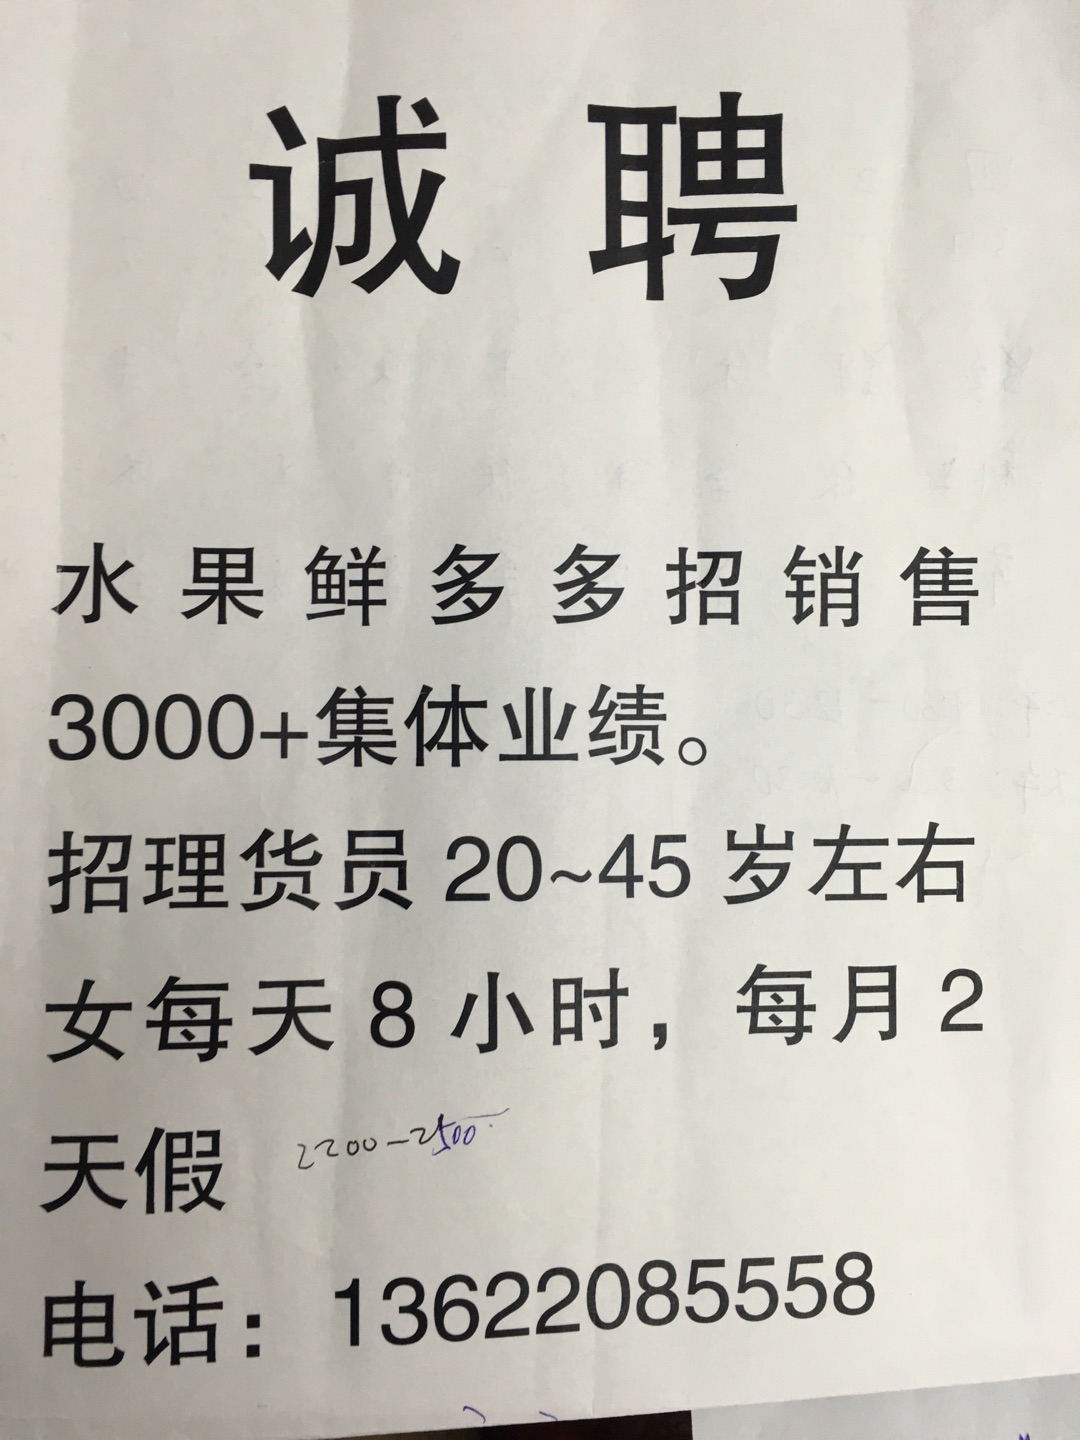 诚聘
水果鲜多多招销售
3000+集体业绩。
招理货员20~45岁左右
女每天8小时，每月2
天假 2200-2500
电话：13622085558